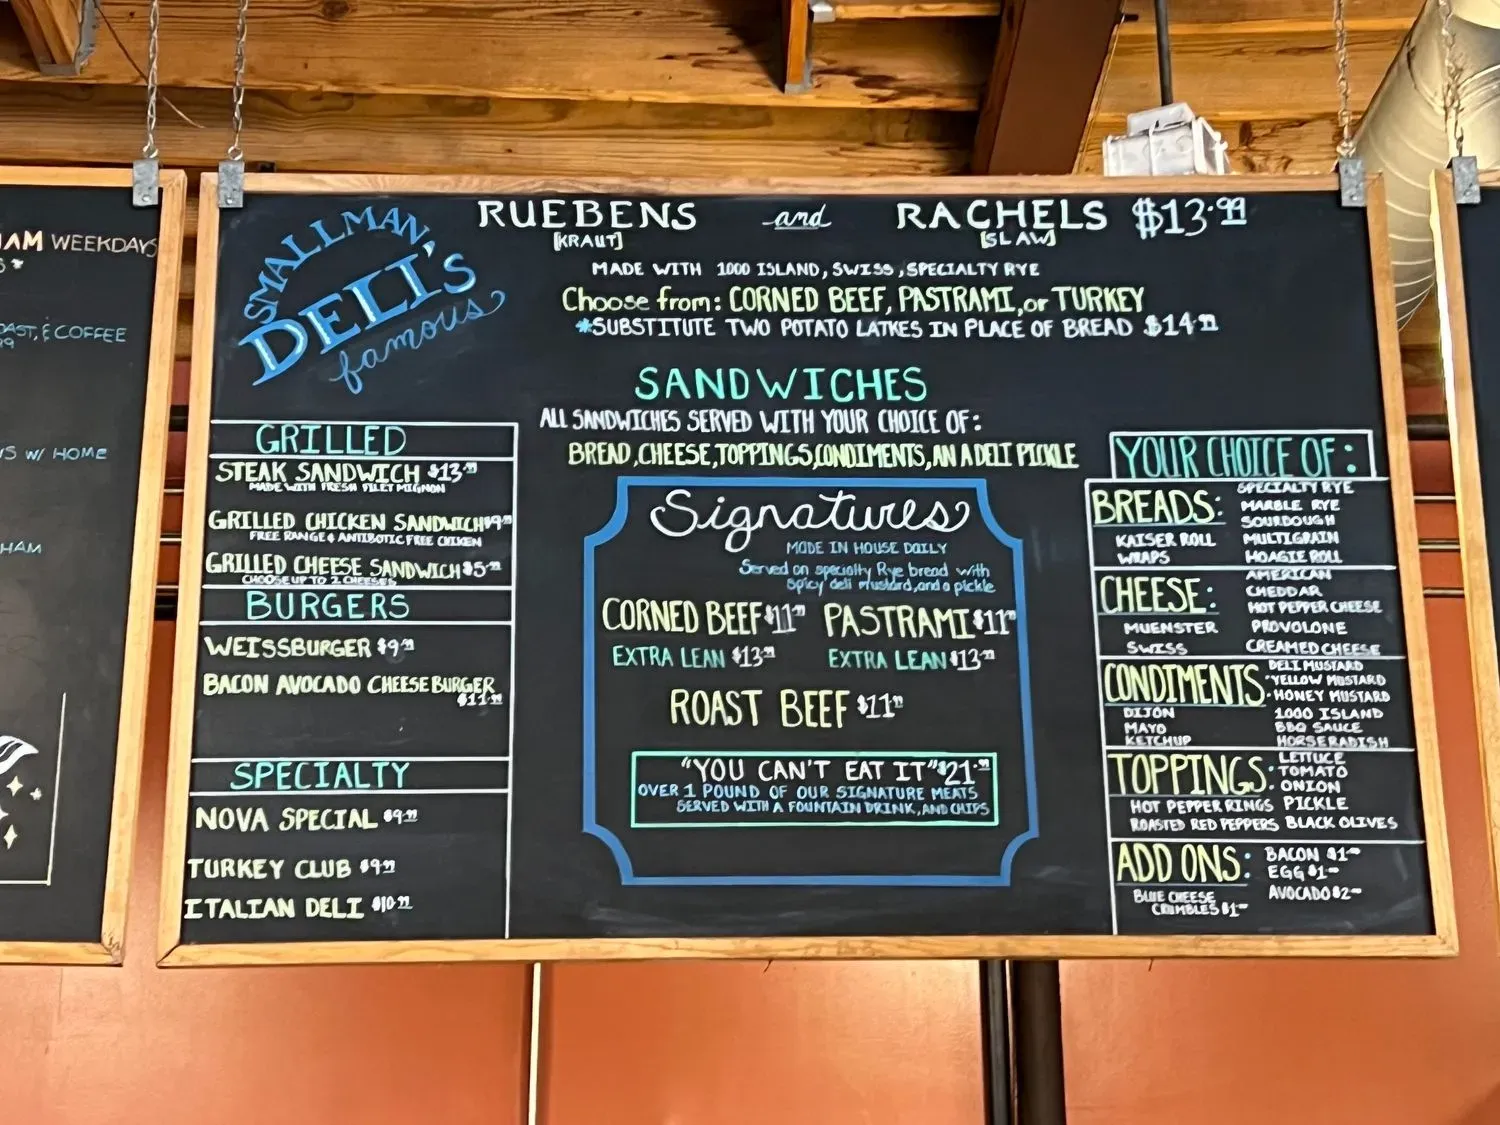 AM WEEKDAYS
OAST, & COFFEE
99
S W/ HOME
HAM
SMALLMAN
DELI'S
famous
RUEBENS and RACHELS $13.99
[KRAUT] [SLAW]
MADE WITH 1000 ISLAND, SWISS, SPECIALTY RYE
Choose from: CORNED BEEF, PASTRAMI, or TURKEY
*SUBSTITUTE TWO POTATO LATKES IN PLACE OF BREAD $14.99
SANDWICHES
ALL SANDWICHES SERVED WITH YOUR CHOICE OF:
BREAD, CHEESE, TOPPINGS, CONDIMENTS, AN A DELI PICKLE
GRILLED
STEAK SANDWICH $13.99
MADE WITH FRESH FILET MIGNON
GRILLED CHICKEN SANDWICH $9.99
FREE RANGE & ANTIBOTIC FREE CHIKEN
GRILLED CHEESE SANDWICH $5.99
CHOOSE UP TO 2 CHEESES
BURGERS
WEISSBURGER $9.99
BACON AVOCADO CHEESEBURGER
$11.99
SPECIALTY
NOVA SPECIAL $9.99
TURKEY CLUB $9.99
ITALIAN DELI $10.99
Signatures
MADE IN HOUSE DAILY
Served on specialty Rye bread with
spicy deli mustard, and a pickle
CORNED BEEF $11.99 PASTRAMI $11.99
EXTRA LEAN $13.99 EXTRA LEAN $13.99
ROAST BEEF $11.99
"YOU CAN'T EAT IT" $21.99
OVER 1 POUND OF OUR SIGNATURE MEATS
SERVED WITH A FOUNTAIN DRINK, AND CHIPS
YOUR CHOICE OF:
BREADS: SPECIALTY RYE
MARBLE RYE
SOURDOUGH
KAISER ROLL MULTIGRAIN
WRAPS HOAGIE ROLL
CHEESE: AMERICAN
CHEDDAR
HOT PEPPER CHEESE
MUENSTER PROVOLONE
SWISS CREAMED CHEESE
CONDIMENTS: DELI MUSTARD
YELLOW MUSTARD
HONEY MUSTARD
DIJON 1000 ISLAND
MAYO BBQ SAUCE
KETCHUP HORSERADISH
TOPPINGS: LETTUCE
TOMATO
ONION
HOT PEPPER RINGS PICKLE
ROASTED RED PEPPERS BLACK OLIVES
ADD ONS: BACON $1
EGG $1
BLUE CHEESE AVOCADO $2
CRUMBLES $1